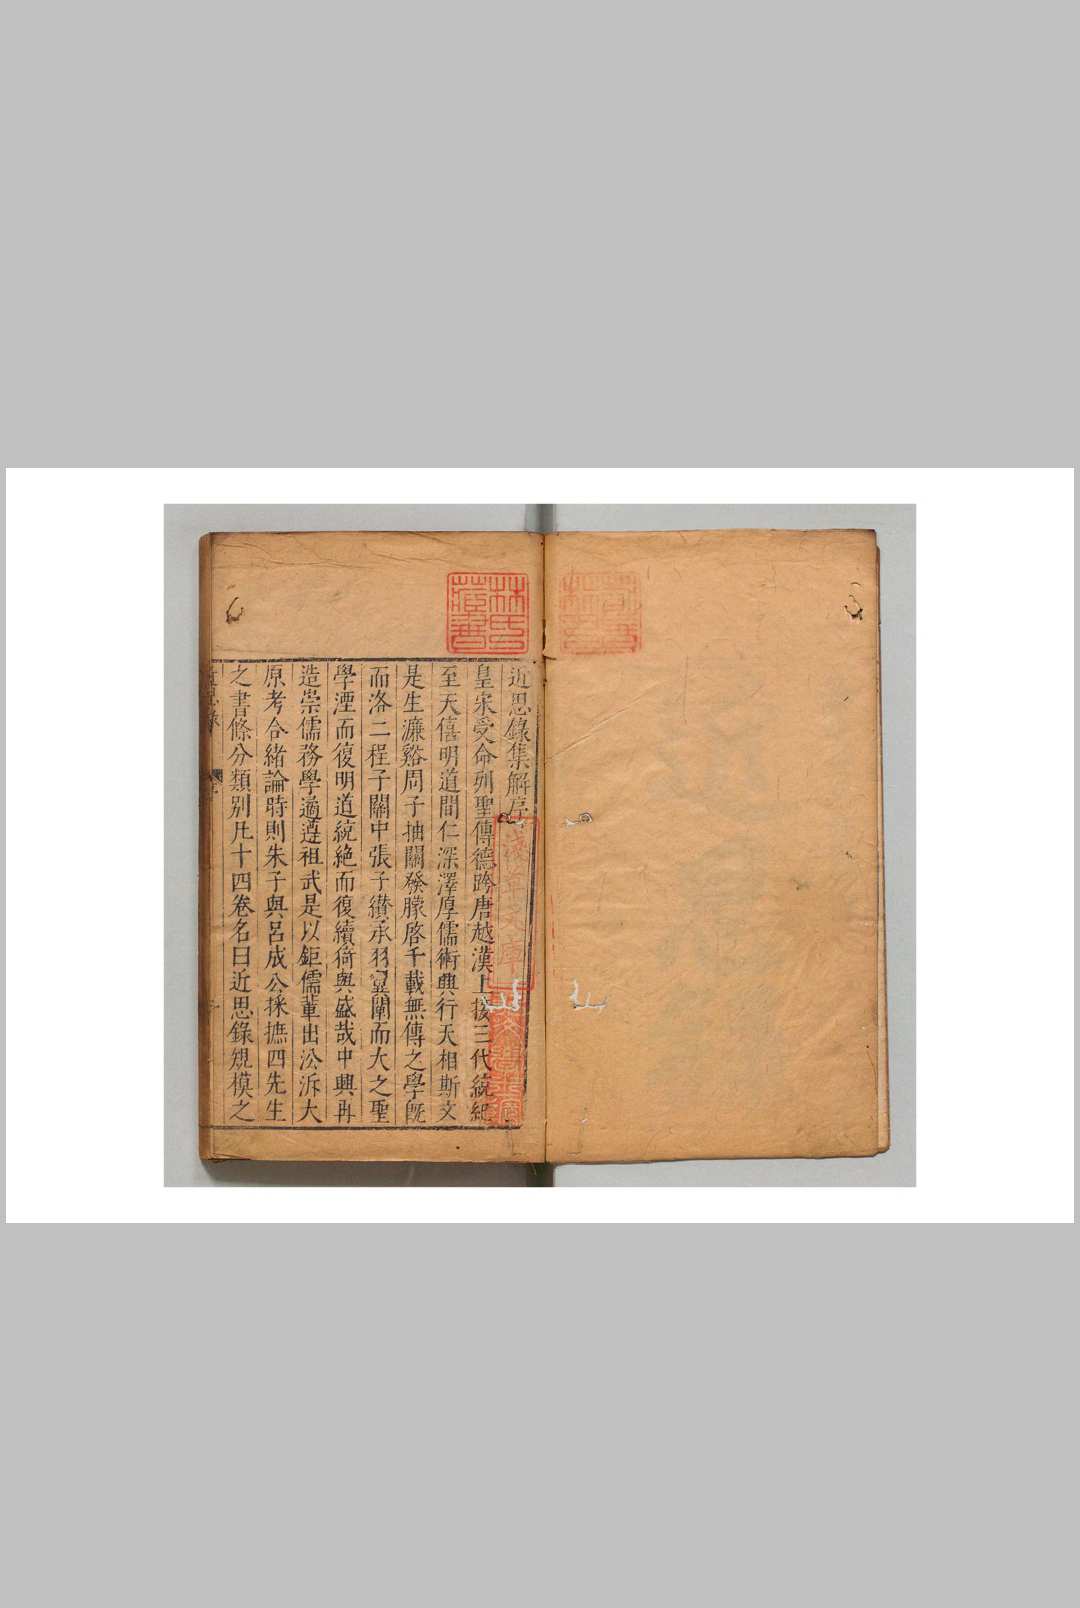 近思錄集解序
皇宋受命列聖傳德跨唐越漢上接三代統紀
至天僖明道間仁深澤厚儒術興行天相斯文
是生濂谿周子抽關發朦啓千載無傳之學旣
而洛二程子關中張子纘承羽翼闡而大之聖
學湮而復明道統絶而復續猗與盛哉中興再
造崇儒務學遹遵祖武是以鉅儒輩出沿泝大
原考合緒論時則朱子與呂成公採摭四先生
之書條分類别凡十四卷名曰近思錄規模之
近思錄
序
林氏藏書
淺草文庫